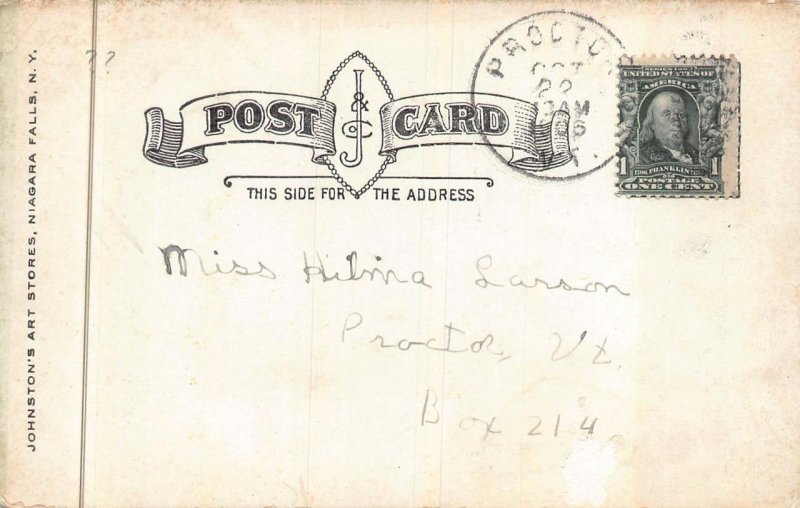 JOHNSTON'S ART STORES, NIAGARA FALLS, N. Y.
??
POST CARD
J & Co J
THIS SIDE FOR THE ADDRESS
PROCTOR
OCT
22
12AM
06
VT.
SERIES 1902
UNITED STATES OF
AMERICA
1 1706 FRANKLIN 1790 1
POSTAGE
ONE CENT
Miss Hilma Larson
Proctor, Vt.
Box 214.